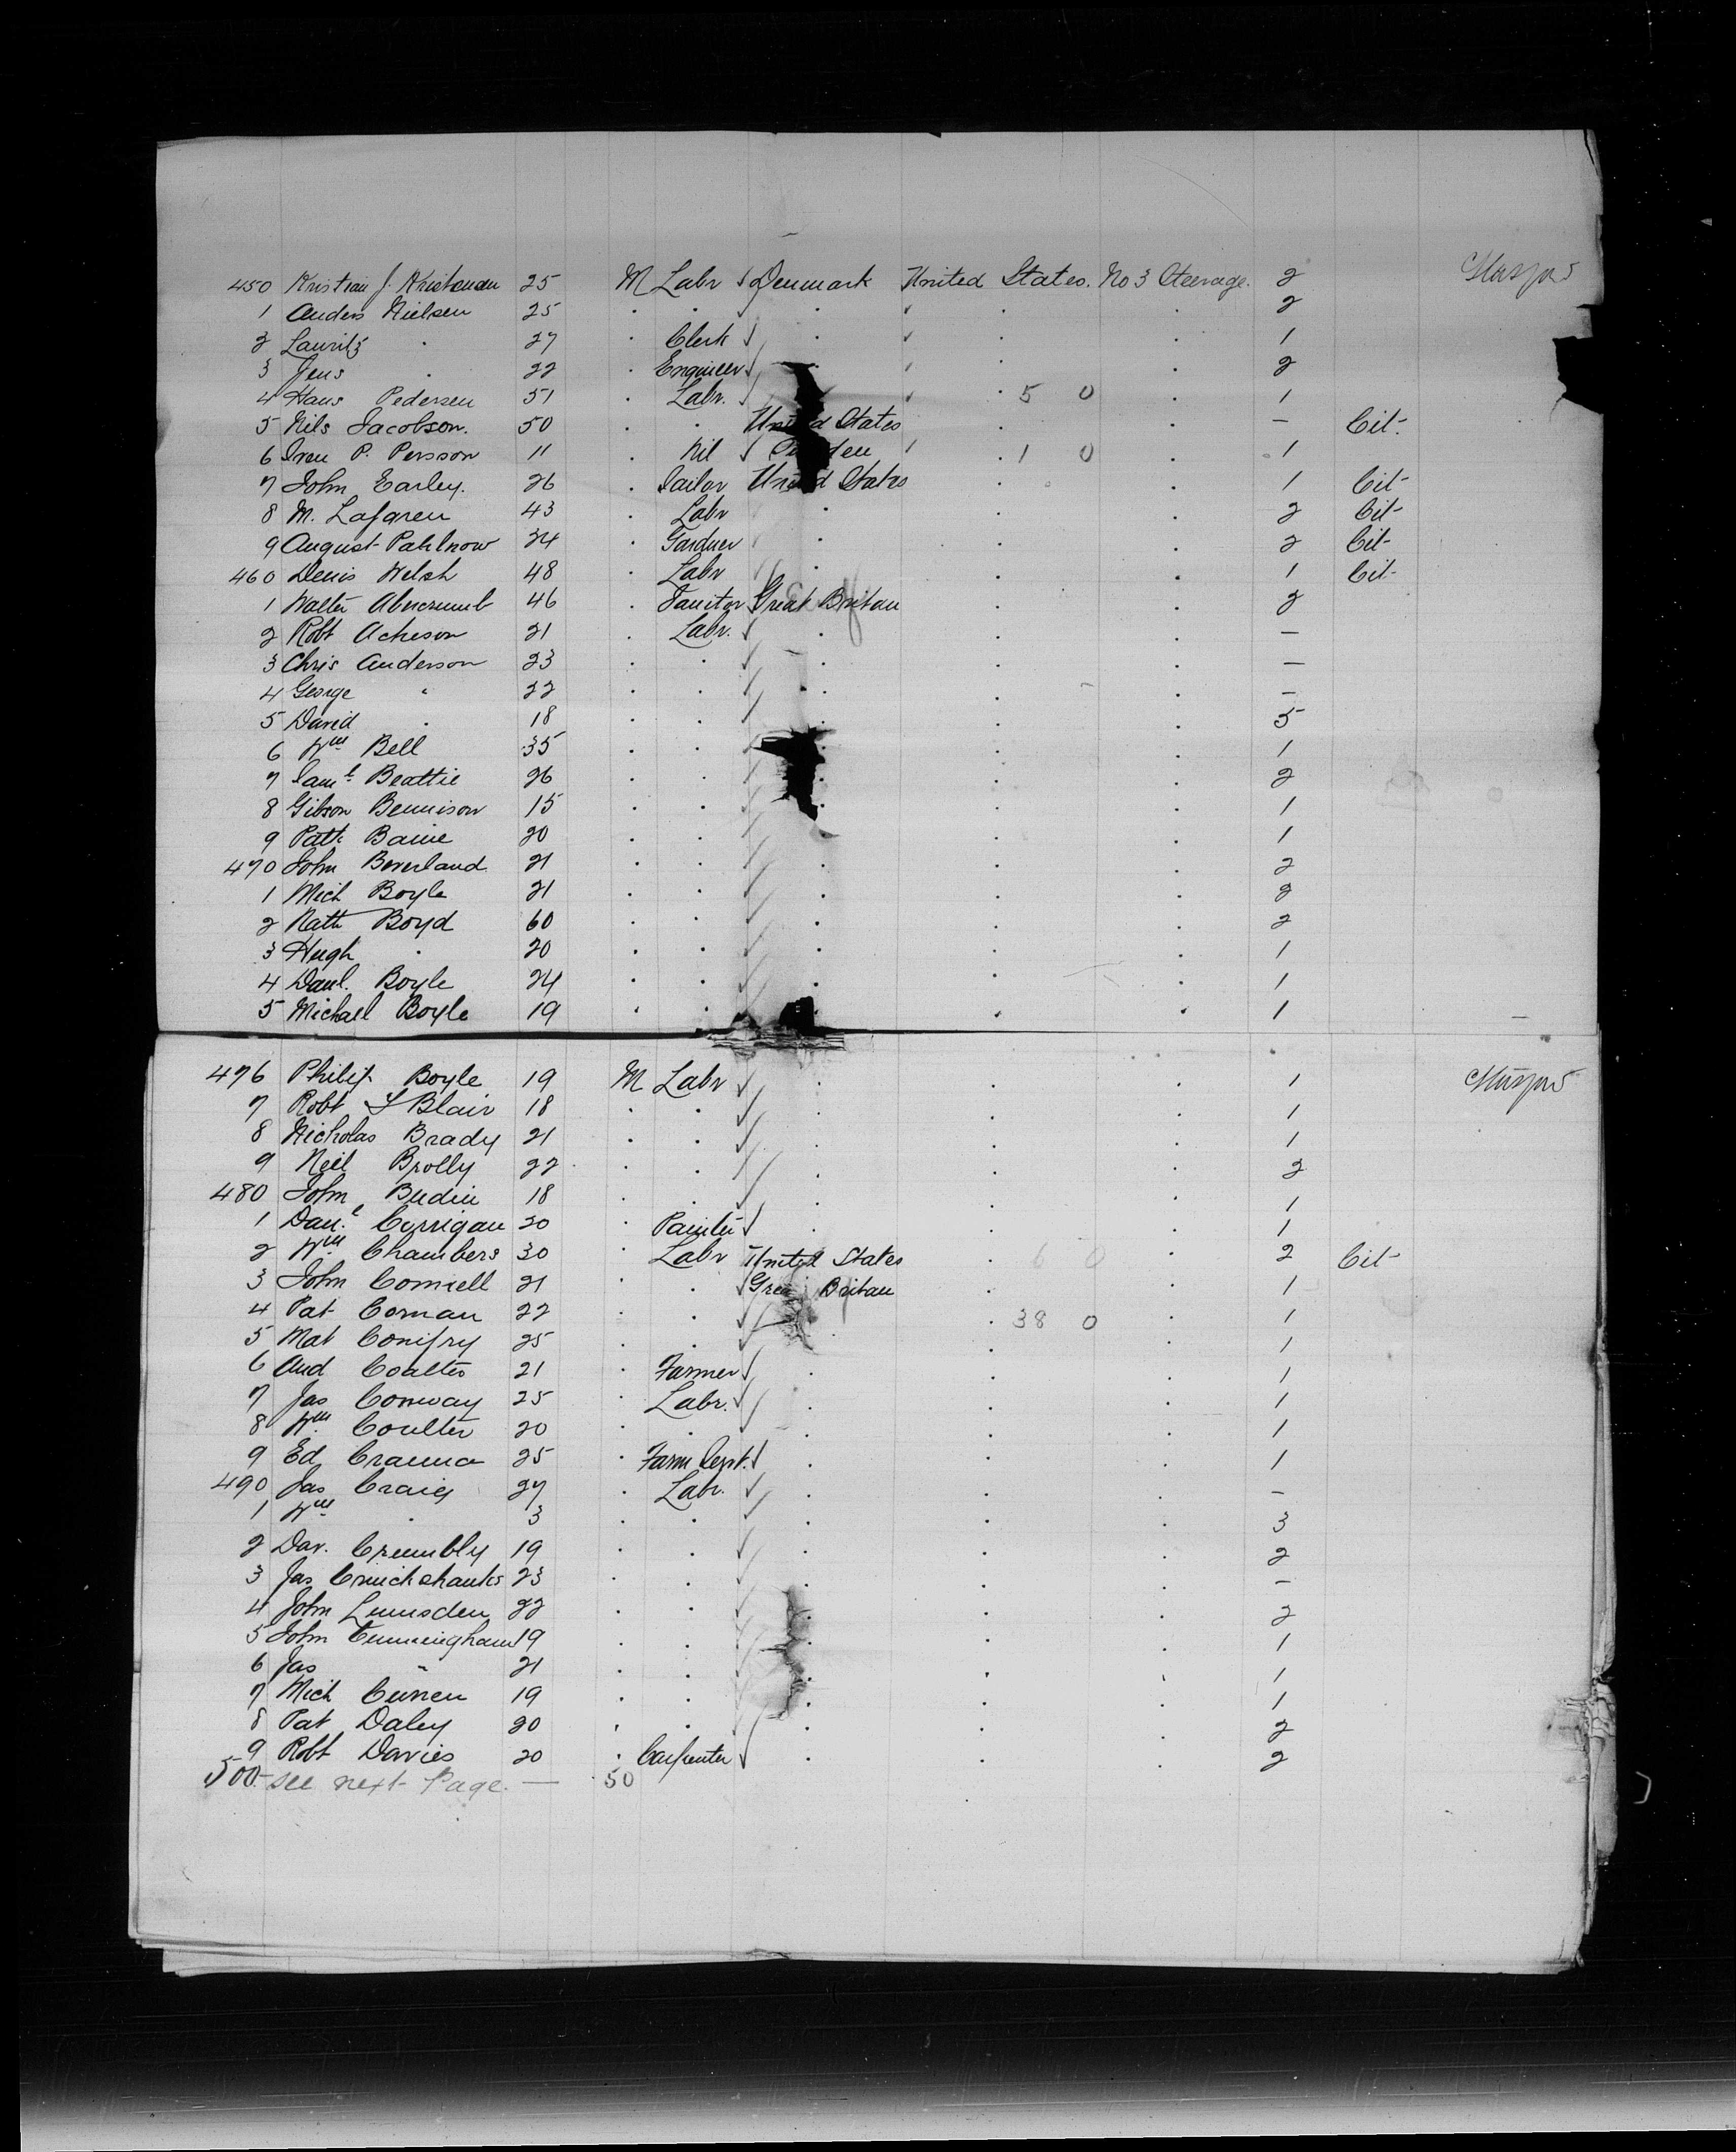 450 Kristian J. Kristensen 25 M Labr Denmark United States. No 3 Steerage. 2
1 Anders Nielsen 25 . . . . . . 2
2 Lauritz . 27 Clerk . . . . 1
3 Jens . 22 . Engineer . . . 2
4 Hans Pedersen 51 . Labr. . . 5 0 . 1
5 Nils Jacobson. 50 . . United States . . — Cit-
6 Sven P. Persson 11 . Nil . 1 0 . 1
7 John Earley. 26 . Sailor United States . . 1 Cit-
8 M. Lafgren 43 . Labr . . . 2 Cit-
9 August Pahlnow 24 . Gardner . . . 2 Cit-
460 Denis Welsh 48 . Labr . . . 1 Cit-
1 Walter Abercrumb 46 . Janitor Great Britan . . 2
2 Robt Acheson 21 . Labr. . . . —
3 Chris Anderson 23 . . . . . —
4 George " 22 . . . . . —
5 David . 18 . . . . . 5
6 Wm Bell 35 . . . . . 1
7 Saml Beattie 26 . . . . . 2
8 Gibson Bennison 15 . . . . . 1
9 Patk Baine 20 . . . . . 1
470 John Beverland 21 . . . . . 2
1 Mich Boyle 21 . . . . . 2
2 Nath Boyd 60 . . . . . 2
3 Hugh . 20 . . . . . 1
4 Danl. Boyle 24 . . . . . 1
5 Michael Boyle 19 . . . . . 1
476 Philip Boyle 19 M Labr . . . 1
7 Robt S Blair 18 . . . . . 1
8 Nicholas Brady 21 . . . . . 1
9 Neil Brolly 22 . . . . . 2
480 John Budin 18 . . . . . 1
1 Danl Corrigan 20 . Painter . . . 1
2 Wm Chambers 30 . Labr United States . 6 0 2 Cit-
3 John Connell 21 . . Britan . 1
4 Pat Coman 22 . . . 38 0 . 1
5 Mat Conifry 25 . . . . 1
6 And Coalter 21 . Farmer . . . 1
7 Jas Conway 25 . Labr. . . . 1
8 Wm Coulter 20 . . . . . 1
9 Ed Cranna 25 . Farm . . . 1
490 Jas Craig 27 . Labr. . . . —
1 Wm . 3 . . . . . 3
2 Dav. Crumbly 19 . . . . . 2
3 Jas Cruickshanks 23 . . . . . —
4 John Lumsden 22 . . . . . 2
5 John Cunningham 19 . . . . . 1
6 Jas " 21 . . . . . 1
7 Mich Curren 19 . . . . . 1
8 Pat Daley 20 . . . . . 2
9 Robt Davies 20 . Carpenter . . . 2
500 see next Page. — 50